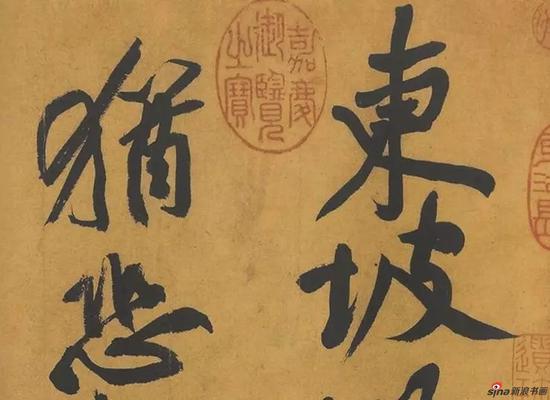 東坡
猶恐
嘉慶
御覽
之寶
sina新浪书画